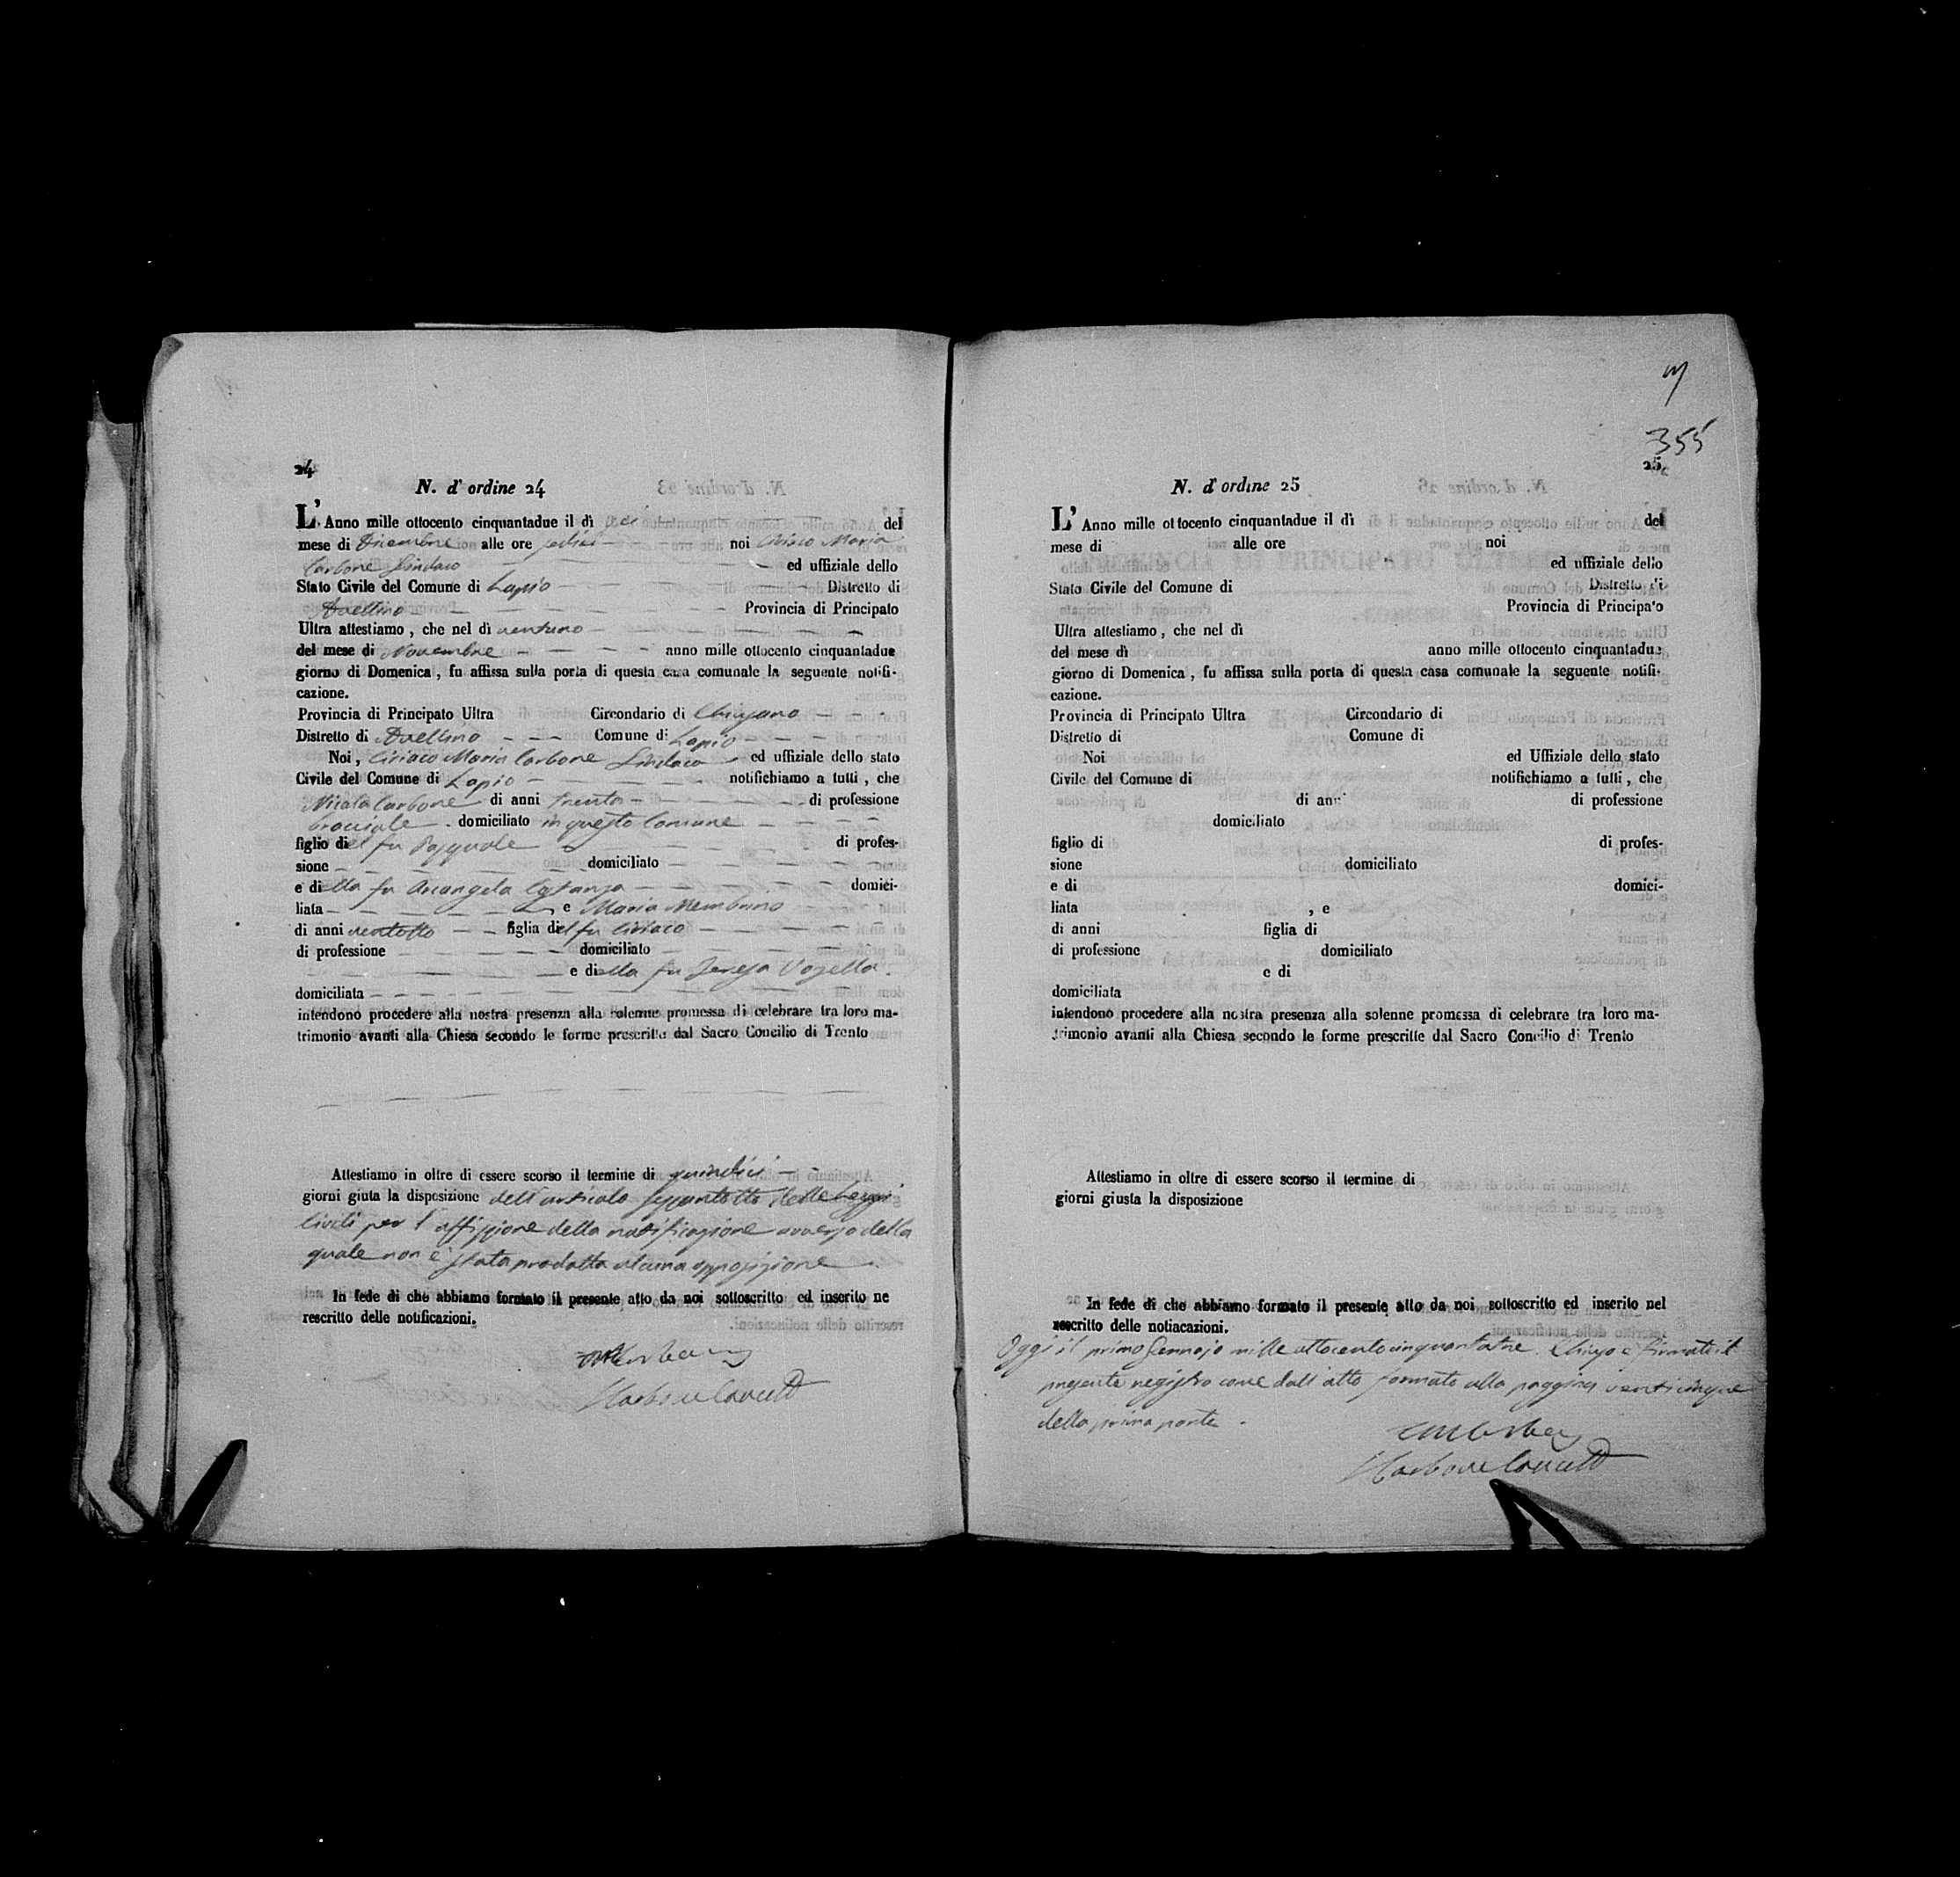 24
N. d' ordine 24
L' Anno mille ottocento cinquantadue il dì del
mese di Dicembre alle ore sedici noi Ciriaco Maria
Carbone Sindaco ed uffiziale dello
Stato Civile del Comune di Lapio Distretto di
Avellino Provincia di Principato
Ultra attestiamo, che nel dì ventuno
del mese di Novembre anno mille ottocento cinquantadue
giorno di Domenica, fu affissa sulla porta di questa casa comunale la seguente notifi-
cazione.
Provincia di Principato Ultra Circondario di Chiusano
Distretto di Avellino Comune di Lapio
Noi, Ciriaco Maria Carbone Sindaco ed uffiziale dello stato
Civile del Comune di Lapio notifichiamo a tutti, che
Nicola Carbone di anni trenta di professione
bracciale domiciliato in questo Comune
figlio di el fu Pasquale di profes-
sione domiciliato
e di ella fu Arcangela domici-
liata e Maria Membrino
di anni ventotto figlia di el fu Ciriaco
di professione domiciliato
e di ella fu Teresa Vozella.
domiciliata
intendono procedere alla nostra presenza alla solenne promessa di celebrare tra loro ma-
trimonio avanti alla Chiesa secondo le forme prescritte dal Sacro Concilio di Trento
Attestiamo in oltre di essere scorso il termine di quindici
giorni giuta la disposizione dell'articolo sessantotto delle Leggi
Civili per l'affissione della notificazione avverso della
quale non è stata prodotta alcuna opposizione
In fede di che abbiamo formato il presente atto da noi sottoscritto ed inserito ne
rescritto delle notificazioni.
355
25
N. d' ordine 25
L' Anno mille ottocento cinquantadue il dì del
mese di alle ore noi
ed uffiziale dello
Stato Civile del Comune di Distretto di
Provincia di Principato
Ultra attestiamo, che nel dì
del mese dì anno mille ottocento cinquantadue
giorno di Domenica, fu affissa sulla porta di questa casa comunale la seguente notifi-
cazione.
Provincia di Principato Ultra Circondario di
Distretto di Comune di
Noi ed Uffiziale dello stato
Civile del Comune di notifichiamo a tutti, che
di anni di professione
domiciliato
figlio di di profes-
sione domiciliato
e di domici-
liata , e
di anni figlia di
di professione domiciliato
e di
domiciliata
intendono procedere alla nostra presenza alla solenne promessa di celebrare tra loro ma-
trimonio avanti alla Chiesa secondo le forme prescritte dal Sacro Concilio di Trento
Attestiamo in oltre di essere scorso il termine di
giorni giusta la disposizione
In fede di che abbiamo formato il presente atto da noi sottoscritto ed inserito nel
rescritto delle notiacazioni.
Oggi il primo Gennajo mille ottocento cinquantatre. Chiuso e firmato il
presente registro come dall'atto formato alla paggina venticinque
della prima parte.